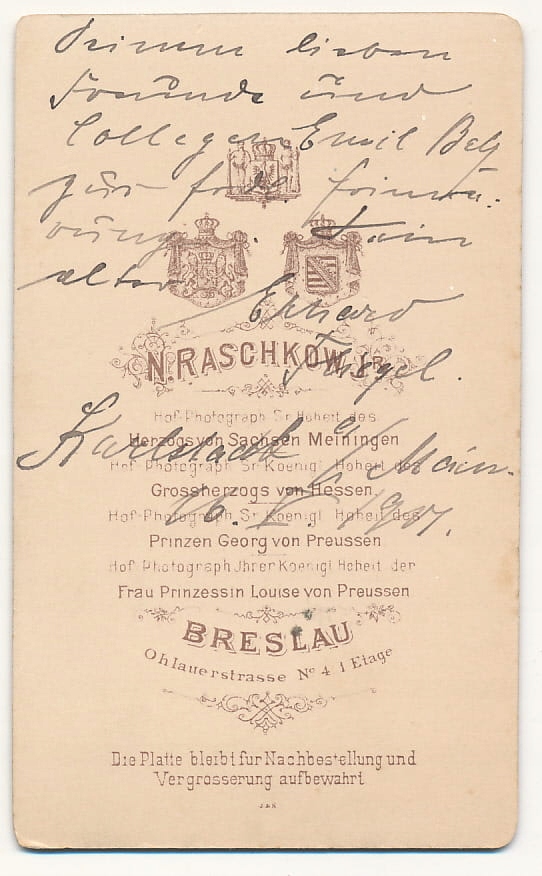 Seinem lieben
Freunde und
Collegen Emil Belz
zur frdl. Erinne-
rung. Sein
alter Erhard
N. RASCHKOW Jr.
Hof-Photograph Sr. Hoheit des
Herzogs von Sachsen Meiningen
Karlstadt a/Main.
Hof-Photograph Sr. Koenigl. Hoheit des
Grossherzogs von Hessen.
Hof-Photograph Sr. Koenigl. Hoheit des
Prinzen Georg von Preussen
Hof-Photograph Jhrer Koenigl. Hoheit der
Frau Prinzessin Louise von Preussen
BRESLAU
Ohlauerstrasse No 4 1 Etage
Die Platte bleibt fur Nachbestellung und
Vergrosserung aufbewahrt